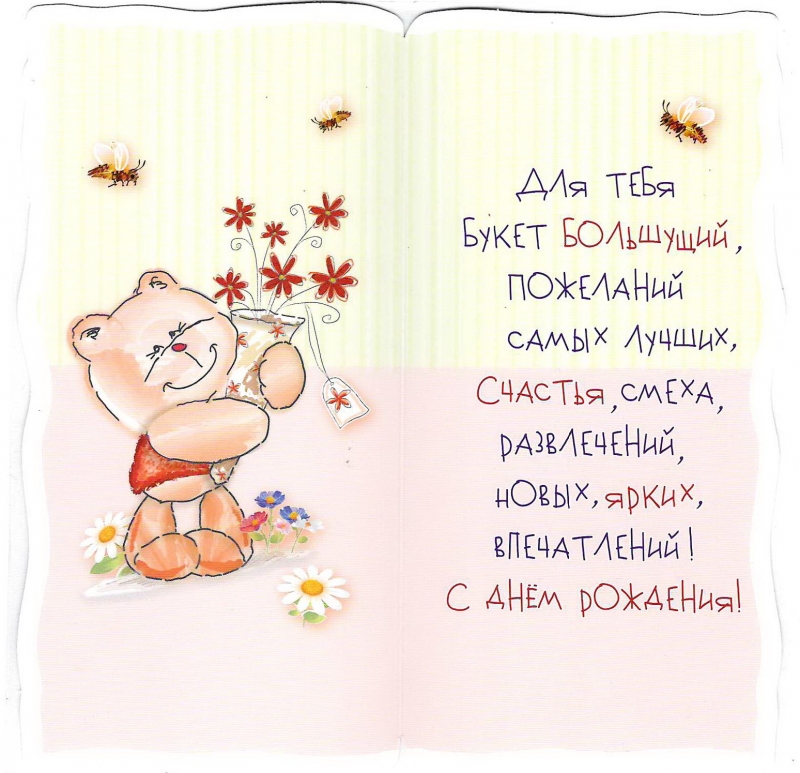 Для тебя
букет большущий,
пожеланий
самых лучших,
Счастья, смеха,
развлечений,
новых, ярких,
впечатлений!
С днём рождения!